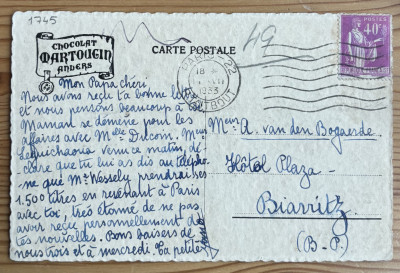 1745
CHOCOLAT
MARTOUGIN
ANVERS
CARTE POSTALE
49
POSTES
40c
PARIS - 22
18
1933
R. TAITBOUT
Mon Papa chéri,
Nous avons reçu ta bonne lettre
et nous pensons beaucoup à
Maman se démène pour les
affaires avec Melle Ducoin. Mme
venue ce matin, dé-
clare que tu lui as dis au télépho-
ne que Mr Wessely prendrai ses
1.500 titres en revenant à Paris
avec toi, très étonné de ne pas
avoir reçu personnellement de
tes nouvelles. Bons baisers de
nous trois et à mercredi. Ta petite
A. van den Bogaerde
Hôtel Plaza-
Biarritz
(B-P)